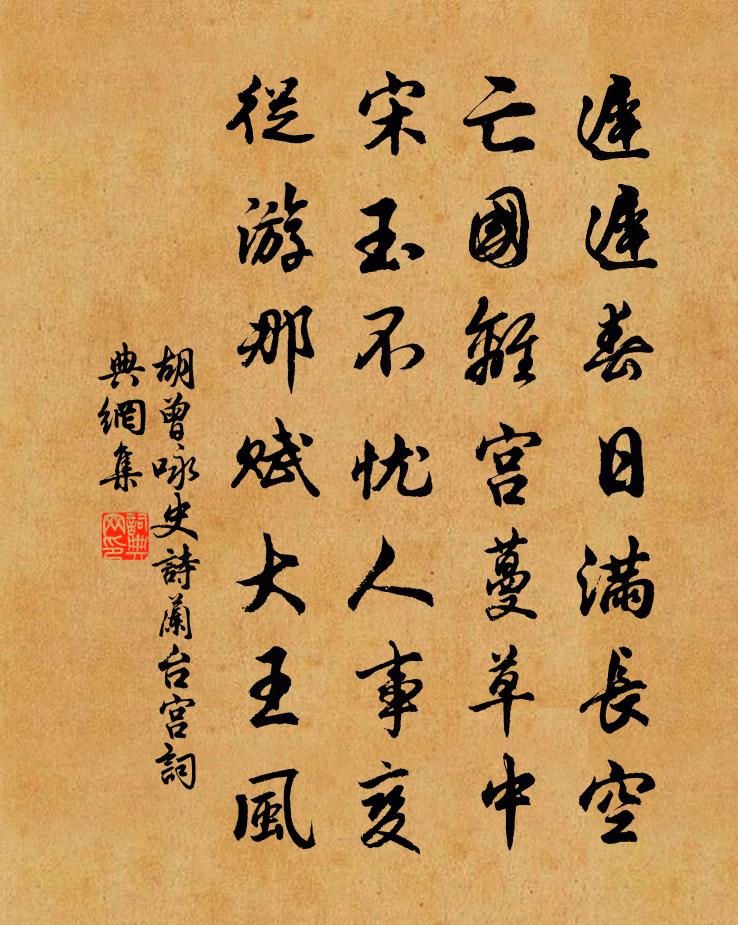 遲遲春日滿長空
亡國離宮蔓草中
宋玉不忧人事变
從游那賦大王風
胡曾咏史詩蘭台宮詞
典網集
詞典
网印